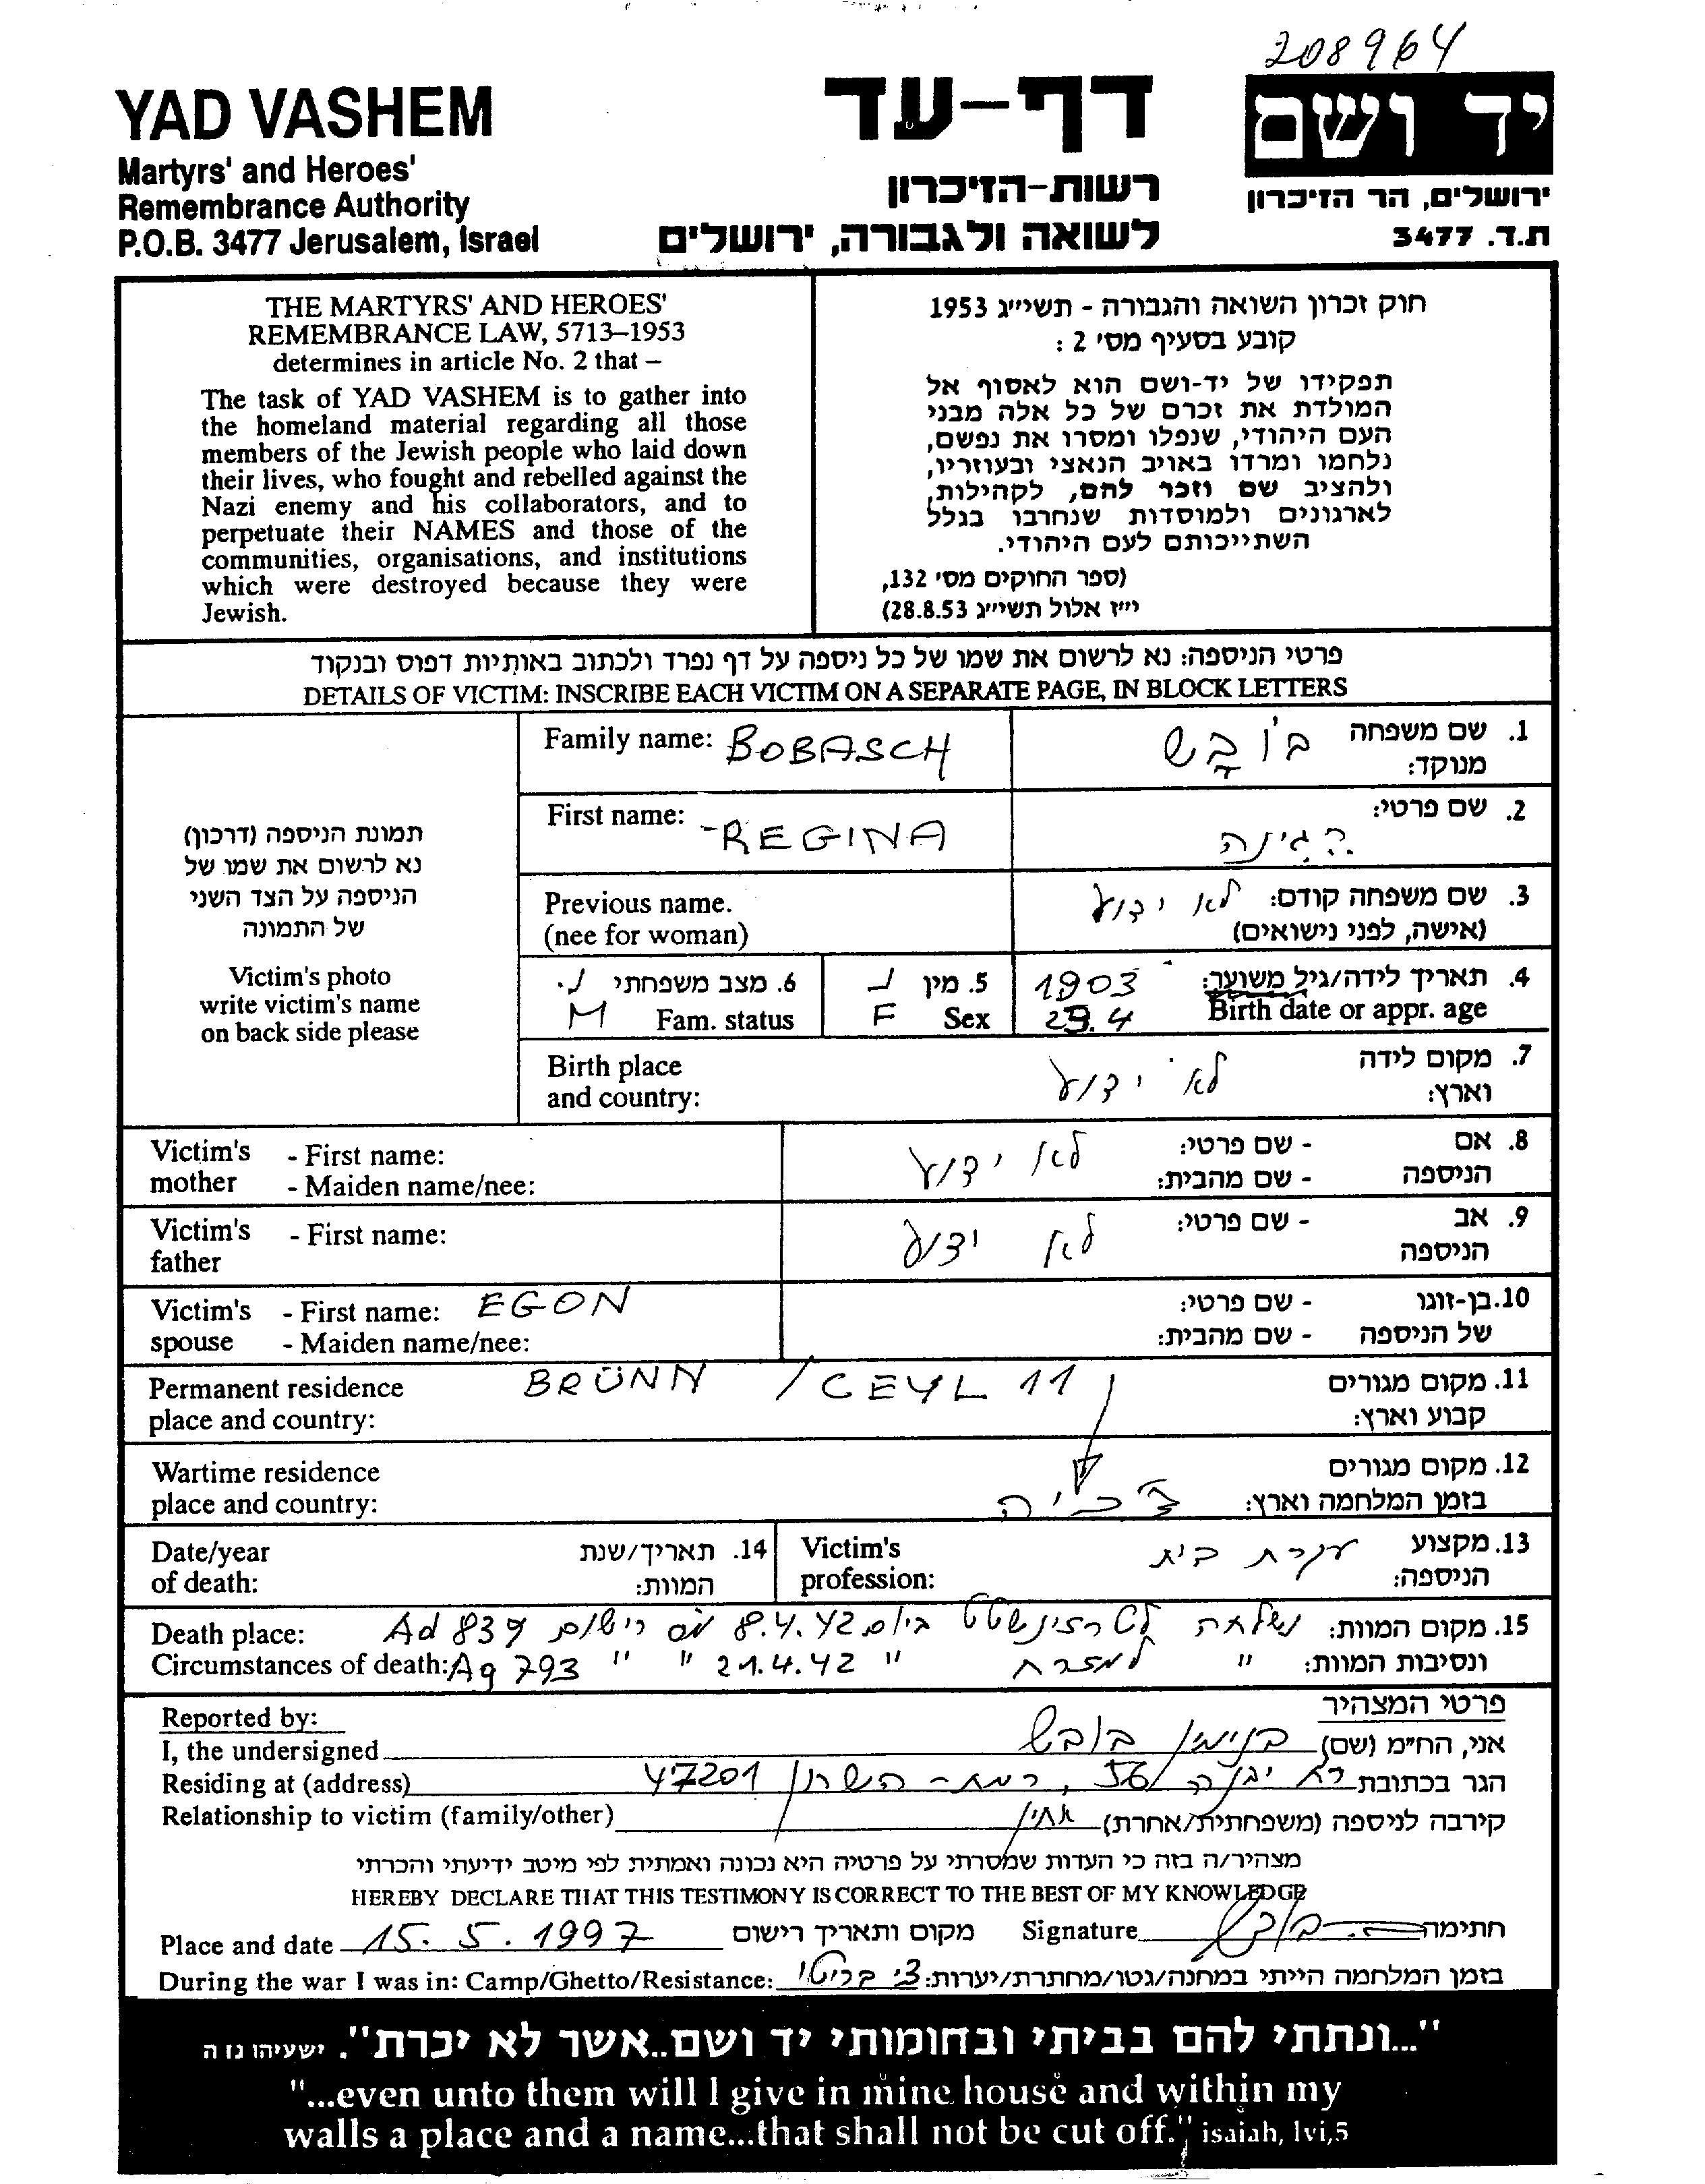 208964
YAD VASHEM
Martyrs' and Heroes'
Remembrance Authority
P.O.B. 3477 Jerusalem, Israel
דף-עד
רשות-הזיכרון
לשואה ולגבורה, ירושלים
יד ושם
ירושלים, הר הזיכרון
ת.ד. 3477
THE MARTYRS' AND HEROES'
REMEMBRANCE LAW, 5713–1953
determines in article No. 2 that –
The task of YAD VASHEM is to gather into
the homeland material regarding all those
members of the Jewish people who laid down
their lives, who fought and rebelled against the
Nazi enemy and his collaborators, and to
perpetuate their NAMES and those of the
communities, organisations, and institutions
which were destroyed because they were
Jewish.
חוק זכרון השואה והגבורה - תשי״ג 1953
קובע בסעיף מס׳ 2 :
תפקידו של יד-ושם הוא לאסוף אל
המולדת את זכרם של כל אלה מבני
העם היהודי, שנפלו ומסרו את נפשם,
נלחמו ומרדו באויב הנאצי ובעוזריו,
ולהציב שם וזכר להם, לקהילות,
לארגונים ולמוסדות שנחרבו בגלל
השתייכותם לעם היהודי.
(ספר החוקים מס׳ 132,
י״ז אלול תשי״ג 28.8.53)
פרטי הניספה: נא לרשום את שמו של כל ניספה על דף נפרד ולכתוב באותיות דפוס ובנקוד
DETAILS OF VICTIM: INSCRIBE EACH VICTIM ON A SEPARATE PAGE, IN BLOCK LETTERS
תמונת הניספה (דרכון)
נא לרשום את שמו של
הניספה על הצד השני
של התמונה
Victim's photo
write victim's name
on back side please
Family name: BOBASCH
1. שם משפחה בוֹבָש
מנוקד:
First name: REGINA
2. שם פרטי: רגינה
Previous name.
(nee for woman)
3. שם משפחה קודם: לא ידוע
(אישה, לפני נישואים)
6. מצב משפחתי נ.
M Fam. status
5. מין נ
F Sex
4. תאריך לידה/גיל משוער: 1903
Birth date or appr. age 29.4
Birth place
and country:
7. מקום לידה לא ידוע
וארץ:
Victim's mother - First name:
- Maiden name/nee:
8. אם הניספה - שם פרטי: לא ידוע
- שם מהבית:
Victim's father - First name:
9. אב הניספה - שם פרטי: לא ידוע
Victim's spouse - First name: EGON
- Maiden name/nee:
10. בן-זוגו של הניספה - שם פרטי:
- שם מהבית:
Permanent residence
place and country:
BRÜNN / CEYL 11
11. מקום מגורים
קבוע וארץ:
Wartime residence
place and country:
12. מקום מגורים
בזמן המלחמה וארץ: צ׳כיה
Date/year
of death:
14. תאריך/שנת
המוות:
Victim's
profession:
13. מקצוע עקרת בית
הניספה:
Death place:
15. מקום המוות: נשלחה לטרזינשטט ביום 8.4.42 מס רישום Ad 839
Circumstances of death:
ונסיבות המוות: " למזרח " 21.4.42 " " Ag 793
Reported by:
פרטי המצהיר
I, the undersigned
אני, הח״מ (שם) בנימין בובש
Residing at (address)
הגר בכתובת רח יבנה 56, רמת-השרון 47201
Relationship to victim (family/other)
קירבה לניספה (משפחתית/אחרת) אחיין
מצהיר/ה בזה כי העדות שמסרתי על פרטיה היא נכונה ואמתית לפי מיטב ידיעתי והכרתי
HEREBY DECLARE THAT THIS TESTIMONY IS CORRECT TO THE BEST OF MY KNOWLEDGE
Place and date 15. 5. 1997 מקום ותאריך רישום
Signature בובש חתימה
During the war I was in: Camp/Ghetto/Resistance:
בזמן המלחמה הייתי במחנה/גטו/מחתרת/יערות: צ׳ בריטי
"...ונתתי להם בביתי ובחומותי יד ושם..אשר לא יכרת". ישעיהו נז ה
"...even unto them will I give in mine house and within my
walls a place and a name...that shall not be cut off." isaiah, lvi,5